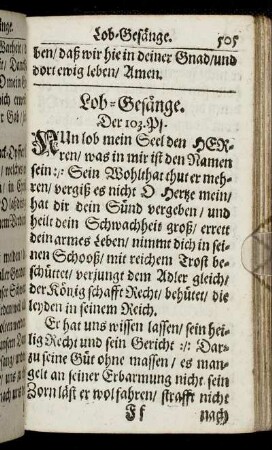 Lob-Gesänge. 505
ben/ daß wir hie in deiner Gnad/ und
dort ewig leben/ Amen.
Lob-Gesänge.
Der 103. Ps.
NUn lob mein Seel den HER-
ren/ was in mir ist den Namen
sein :/: Sein Wohlthat thut er meh-
ren/ vergiß es nicht O Hertze mein/
hat dir dein Sünd vergeben/ und
heilt dein Schwachheit groß/ errett
dein armes Leben/ nimmt dich in sei-
nen Schooß/ mit reichem Trost be-
schüttet/ verjungt dem Adler gleich/
der König schafft Recht/ behütet/ die
leyden in seinem Reich.
Er hat uns wissen lassen/ sein hei-
lig Recht und sein Gericht :/: Dar-
zu seine Güt ohne massen/ es man-
gelt an seiner Erbarmung nicht sein
Zorn läst er wol fahren/ strafft nicht
Ff nach